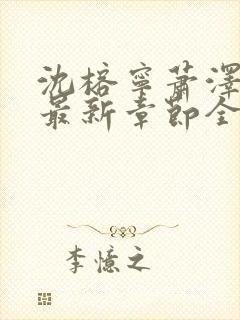 沈榕寧蕭澤
最新章節全
李憶之